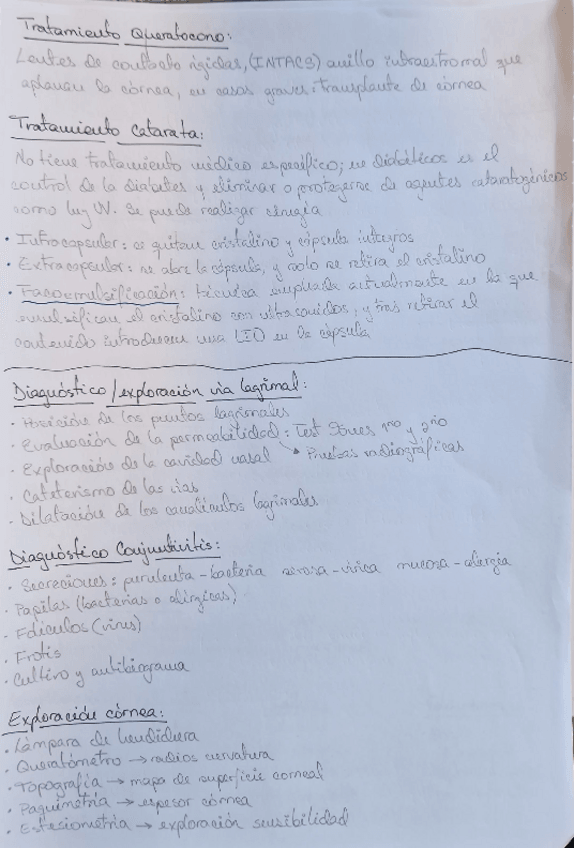 Tratamiento Queratocono:
Lentes de contacto rígidas, (INTACS) anillo intraestromal que
aplanan la córnea, en casos graves: transplante de córnea
Tratamiento Catarata:
No tiene tratamiento médico específico; en Diabéticos es el
control de la diabetes y eliminar o protegerse de agentes cataratogénicos
como luz UV. Se puede realizar cirugía
• Intracapsular: se quitan cristalino y cápsula íntegros
• Extracapsular: se abre la cápsula, y solo se retira el cristalino
• Facoemulsificación: técnica empleada actualmente en la que
emulsifican el cristalino con ultrasonidos, y tras retirar el
contenido introducen una LIO en la cápsula
Diagnóstico/exploración vía lagrimal:
• Posición de los puntos lagrimales
• Evaluación de la permeabilidad: Test Jones 1rio y 2rio
• Exploración de la cavidad nasal ↘ Pruebas radiográficas
• Cateterismo de las vías
• Dilatación de los canalículos lagrimales
Diagnóstico Conjuntivitis:
• Secreciones: purulenta - bacteria serosa - vírica mucosa - alergia
• Papilas (bacterias o alérgicas)
• Folículos (virus)
• Frotis
• Cultivo y antibiograma
Exploración córnea:
• Lámpara de hendidura
• Queratómetro → radios curvatura
• Topografía → mapa de superficie corneal
• Paquimetría → espesor córnea
• Estesiometría → exploración sensibilidad